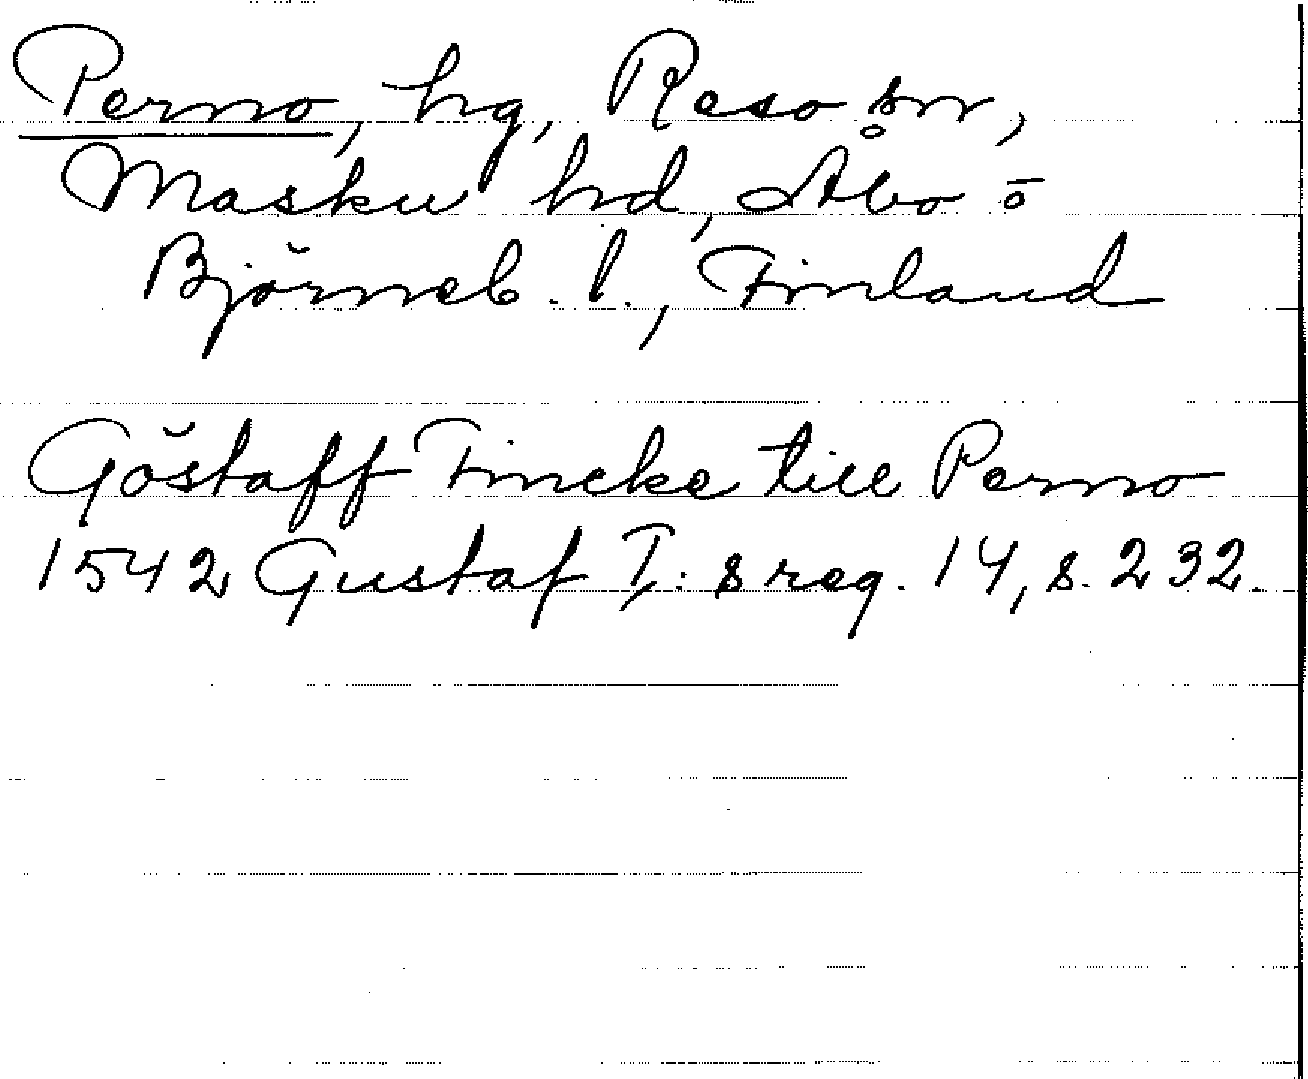 Perno, hg, Reso sn,
Masku hd, Åbo o
Björneb. l., Finland
Göstaff Fincke till Perno
1542 Gustaf I:s reg. 14, s. 232.